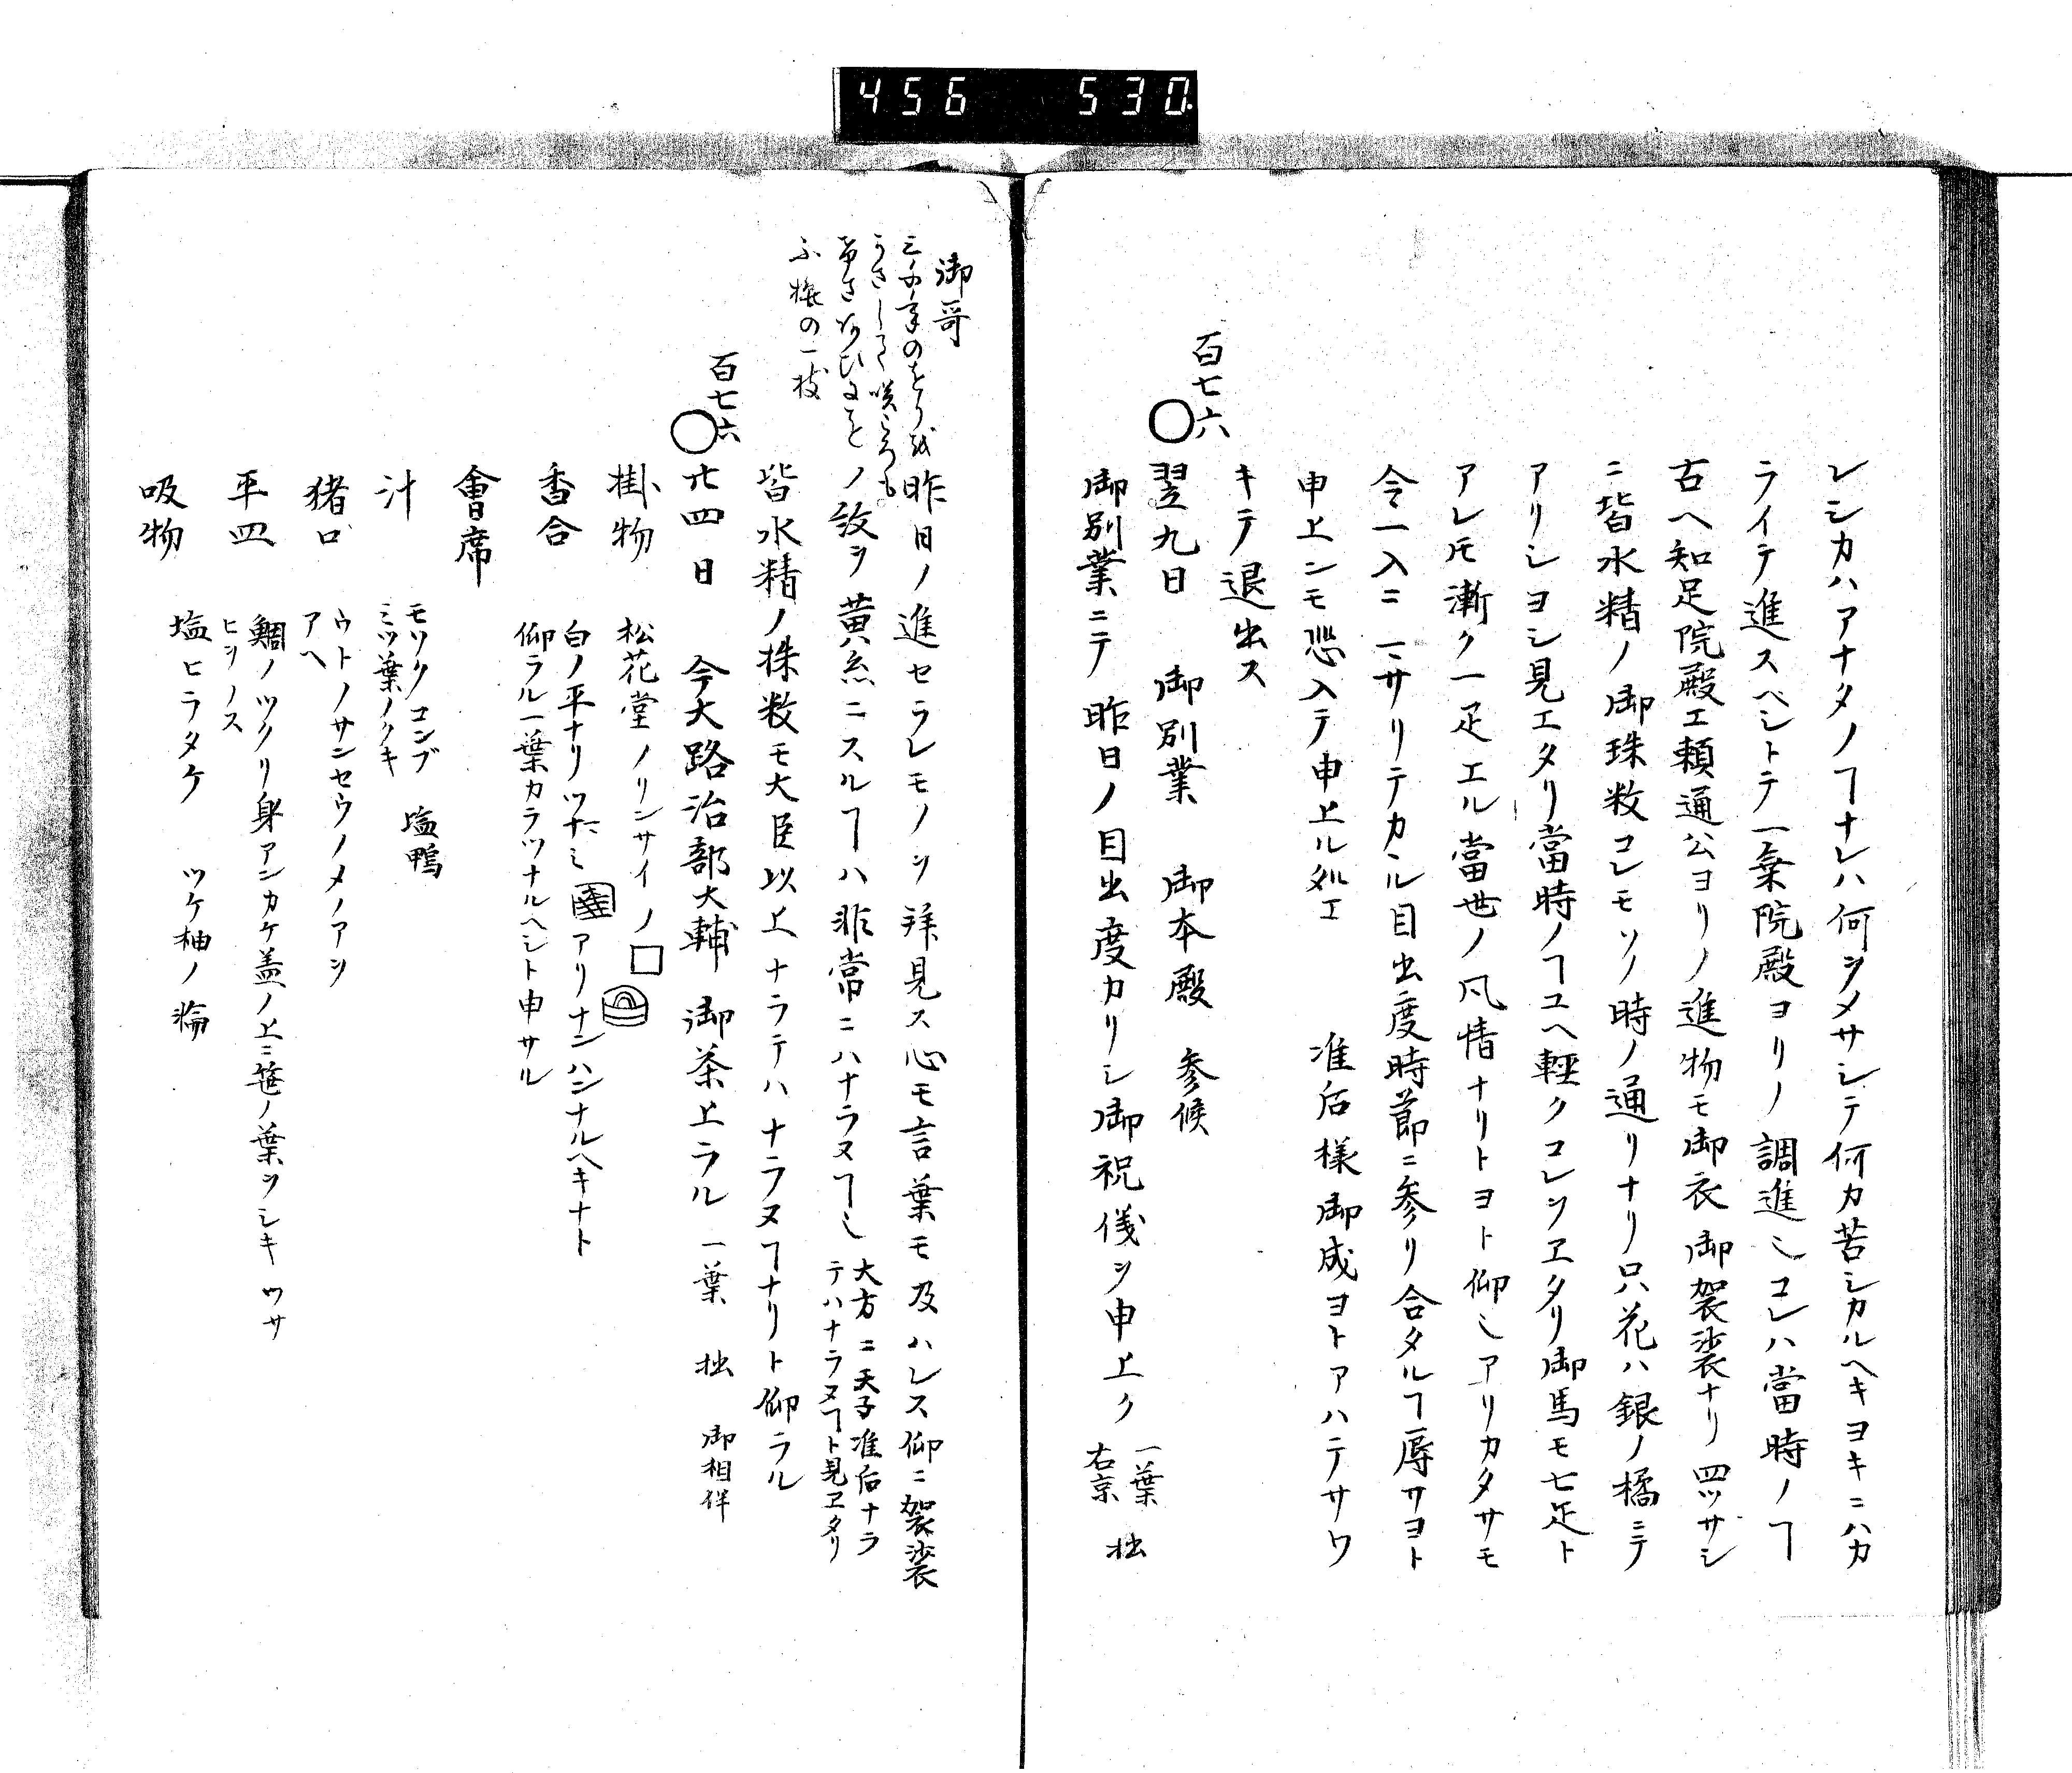 456 530
レシカハアナタノヿナレハ何ヲメサシテ何カ苦シカルヘキヨキニハカ
ライテ進スヘシトテ一乗院殿ヨリノ調進也コレハ當時ノヿ
古ヘ知足院殿エ頼通公ヨリノ進物モ御衣御袈裟ナリ四ツサシ
ニ皆水精ノ御珠数コレモソノ時ノ通リナリ只花ハ銀ノ橘ニテ
アリシヨシ見エタリ當時ノヿユヘ輕クコレヲヱタリ御馬モ七疋ト
アレモ漸ク一疋エル當世ノ風情ナリトヨト仰也アリカタサモ
今一入ニ
サリテカヽル目出度時節ニ参リ合タルヿ辱サヨト
申上ンモ恐入テ申上ル処エ 准后様御成ヨトアハテサワ
キテ退出ス
百七六
○翌九日 御別業 御本殿 参候
御別業ニテ昨日ノ目出度カリシ御祝儀ヲ申上ク 一葉 拙
右京
御哥
ふ梅の一枝
昨日ノ進セラレモノヲ拜見ス心モ言葉モ及ハレス仰ニ袈裟
ノ紋ヲ黄糸ニスルヿハ非常ニハナラヌヿ也 大方ニ天子准后ナラ
テハナラヌヿト見ヱタリ
皆水精ノ珠数モ大臣以上ナラテハナラヌヿナリト仰ラル
百七六
○廿四日 今大路治部大輔 御茶上ラル 一葉 拙 御相伴
掛物 松花堂ノリンサイノ□
香合 白ノ平ナリツナミ アリナンハンナルヘキナト
仰ラル一葉カラツナルヘシト申サル
會席
汁 モソクコンブ 塩鴨
ミツ葉ノクキ
猪口 ウトノサンセウノメノアヲ
アヘ
平皿 鯛ノツクリ身アンカケ盖ノ上ニ笹ノ葉ヲシキ ワサ
ヒヲノス
吸物 塩ヒラタケ ツケ柚ノ輪